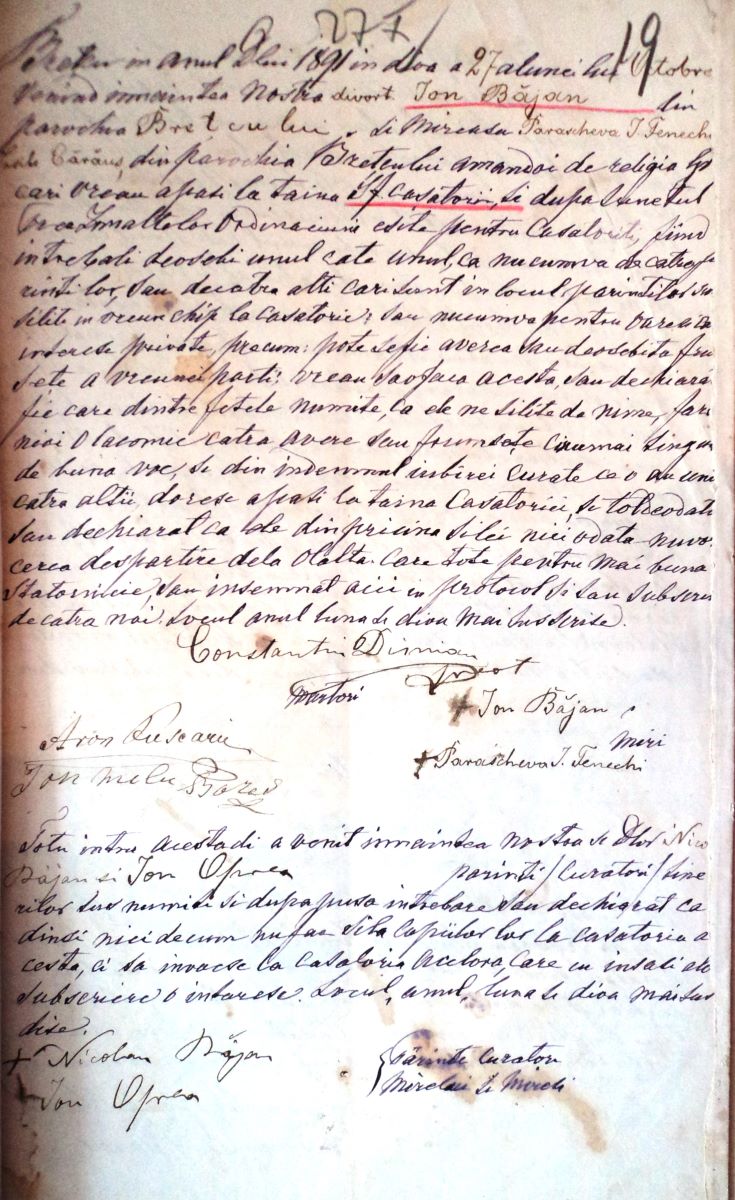 277
19
Bretcu in anul Dlui 1891 in diua a 27 a lunei lui Octobre
venind innaintea nostra divort. Ion Băjan din
parochia Bretcului si Mireasa Parascheva I. Fenechi
Cărăuș, din parochia Bretcului amandoi de religia
cari vreau a pasi la taina a casatorii, si dupa sunetul
inaltelor Ordinaciuni esite pentru Casatoriti, fiind
intrebati deosebi unul cate unul, ca nu cumva de catre pa
rintii lor, sau de catra alti cari sunt in locul parintilor su
siliti in vreun chip la casatorie; sau nu cumva pentru oarecare
interese private, precum: pote se fie averea sau deosebita fru
sete a vreunei parti: vreau sa o faca acesta, sau dechiarat
fie care dintre fetele numite, ca ele ne silite de nime, fara
nici o lacomie catra avere sau frumsețe, ci numai singur
de buna voe, si din indemnul iubirei curate ce o au unii
catra altii, doresc a pasi la taina Casatoriei, si totdeodata
sau dechiarat ca ele din pricina silei nici odata nu vor
cerea despartire dela olalta. Care tote pentru mai buna
statornicie, sau insemnat aici in protocol si sau subscris
de catra noi. Locul anul luna si diua mai sus scrise.
Constantin Dimian
preot
martori
+ Ion Băjan
miri
Aron Puscariu
+ Parascheva I. Fenechi
Ion
Totu intru acesta di a venit innaintea nostra si Dlor Nico
Băjan si Ion Oprea parinti / Curatori / tine
rilor sus numiti si dupa pusa intrebare sau dechiarat ca
dinsi nici decum nu fac sila copiilor lor la casatoria a
cesta, ci sa invoesc la casatoria acelora, care cu insasi a lor
subscriere o intaresc. Locul, anul, luna si diua mai sus
dise.
+ Nicolau Băjan
Părinti Curatori
Mirelui și Miresi
+ Ion Oprea